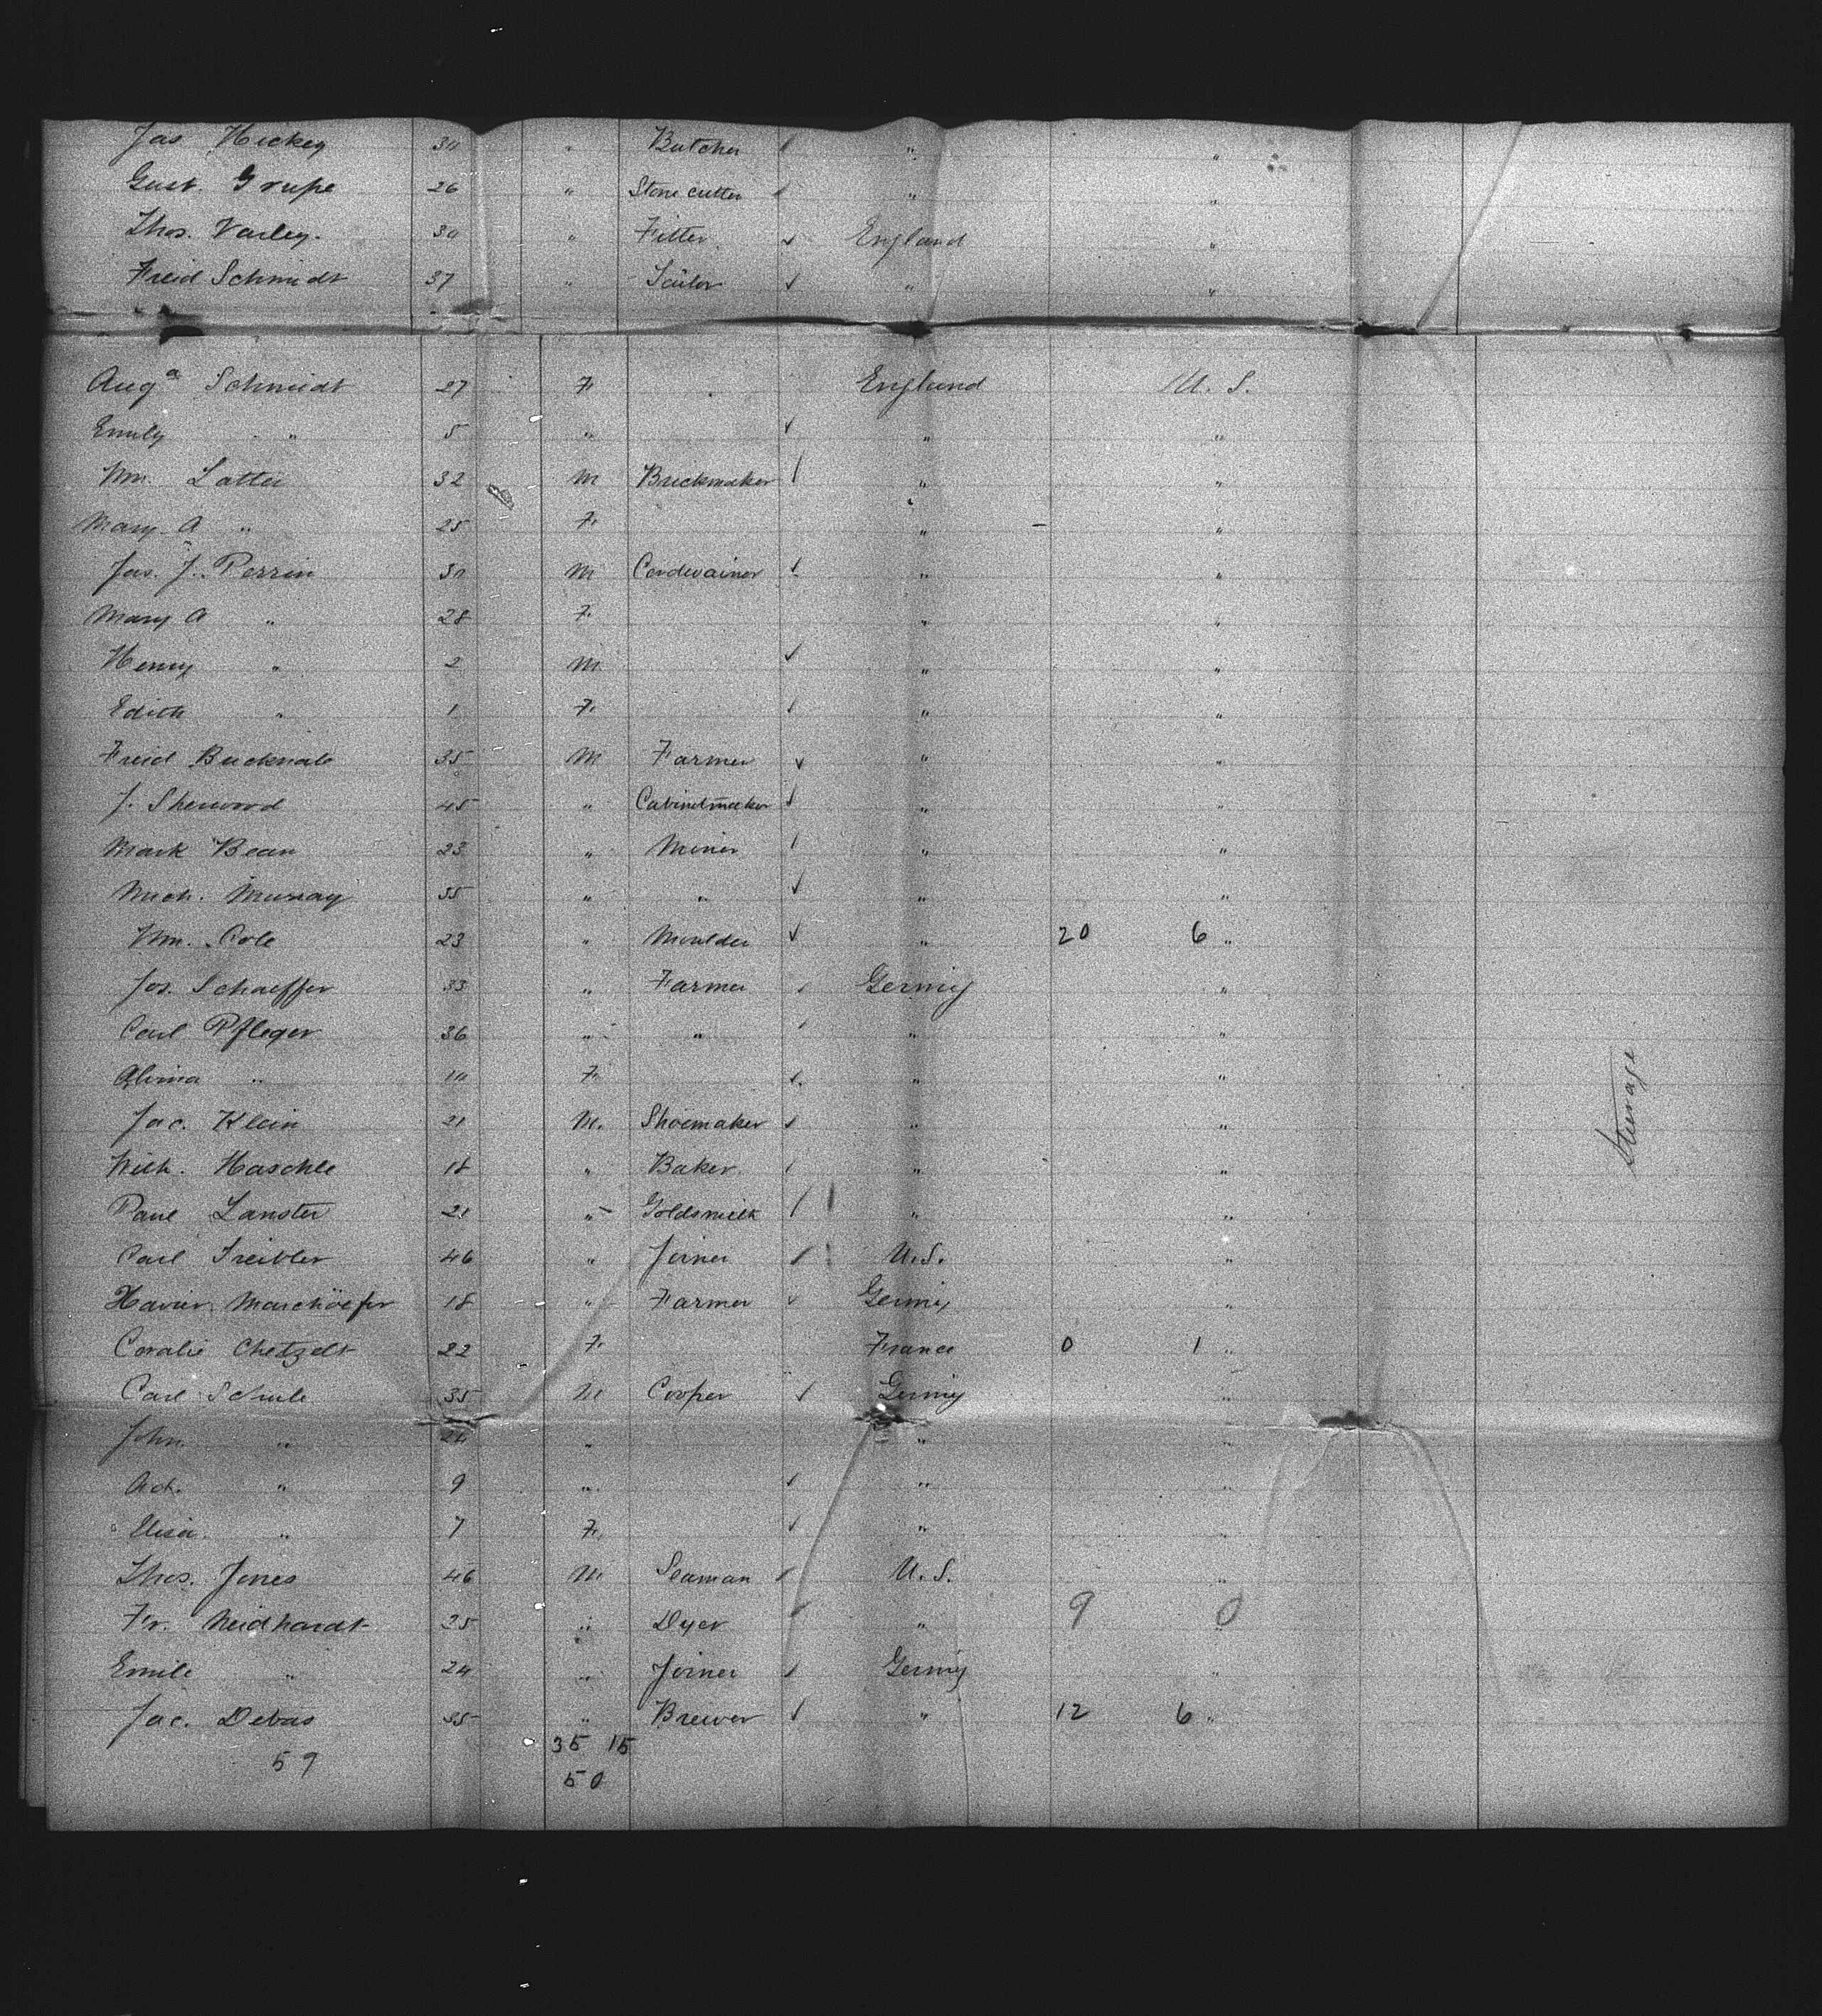 Jas Hickey 30 " Butcher " "
Gust. Grupe 26 " Stone cutter " "
Thos. Varley. 30 " Fitter England "
Fried Schmidt 37 " Tailor " "
Augª Schmidt 27 F. England U. S.
Emily " 5 " " "
Wm. Latter 32 M Brickmaker " "
Mary A " 25 F. " "
Jas. J. Perrin 30 M Cordwainer " "
Mary A " 28 F. " "
Henry " 2 M. " "
Edith " 1 F. " "
Fried 35 M Farmer " "
J. Sherwood 45 " Cabinetmaker " "
Mark Bean 23 " Miner " "
Mich. Murray 35 " " " "
Wm. Cole 23 " Moulder " 20 6 "
Jos. Schaeffer 33 " Farmer Germy "
Carl Pfleger 36 " " " "
" 10 F. " "
Jac. Klein 21 M. Shoemaker " "
Wilh. Haschle 18 " Baker " "
Paul Lanster 21 " Goldsmith " "
Carl Treibler 46 " Joiner U.S. "
18 " Farmer Germy "
Coralie Chetzelt 22 F. France 0 1 "
Carl Schule 35 M Cooper Germy "
John " 24 " " "
Ad. " 9 " " "
Elisa " 7 F. " "
Thos. Jones 46 M Seaman U. S. "
Fr. Neidhardt 25 " Dyer " 9 0 "
Emile " 24 " Joiner Germy "
Jac. Debas 35 " Brewer " 12 6 "
35 15
59
50
Steerage